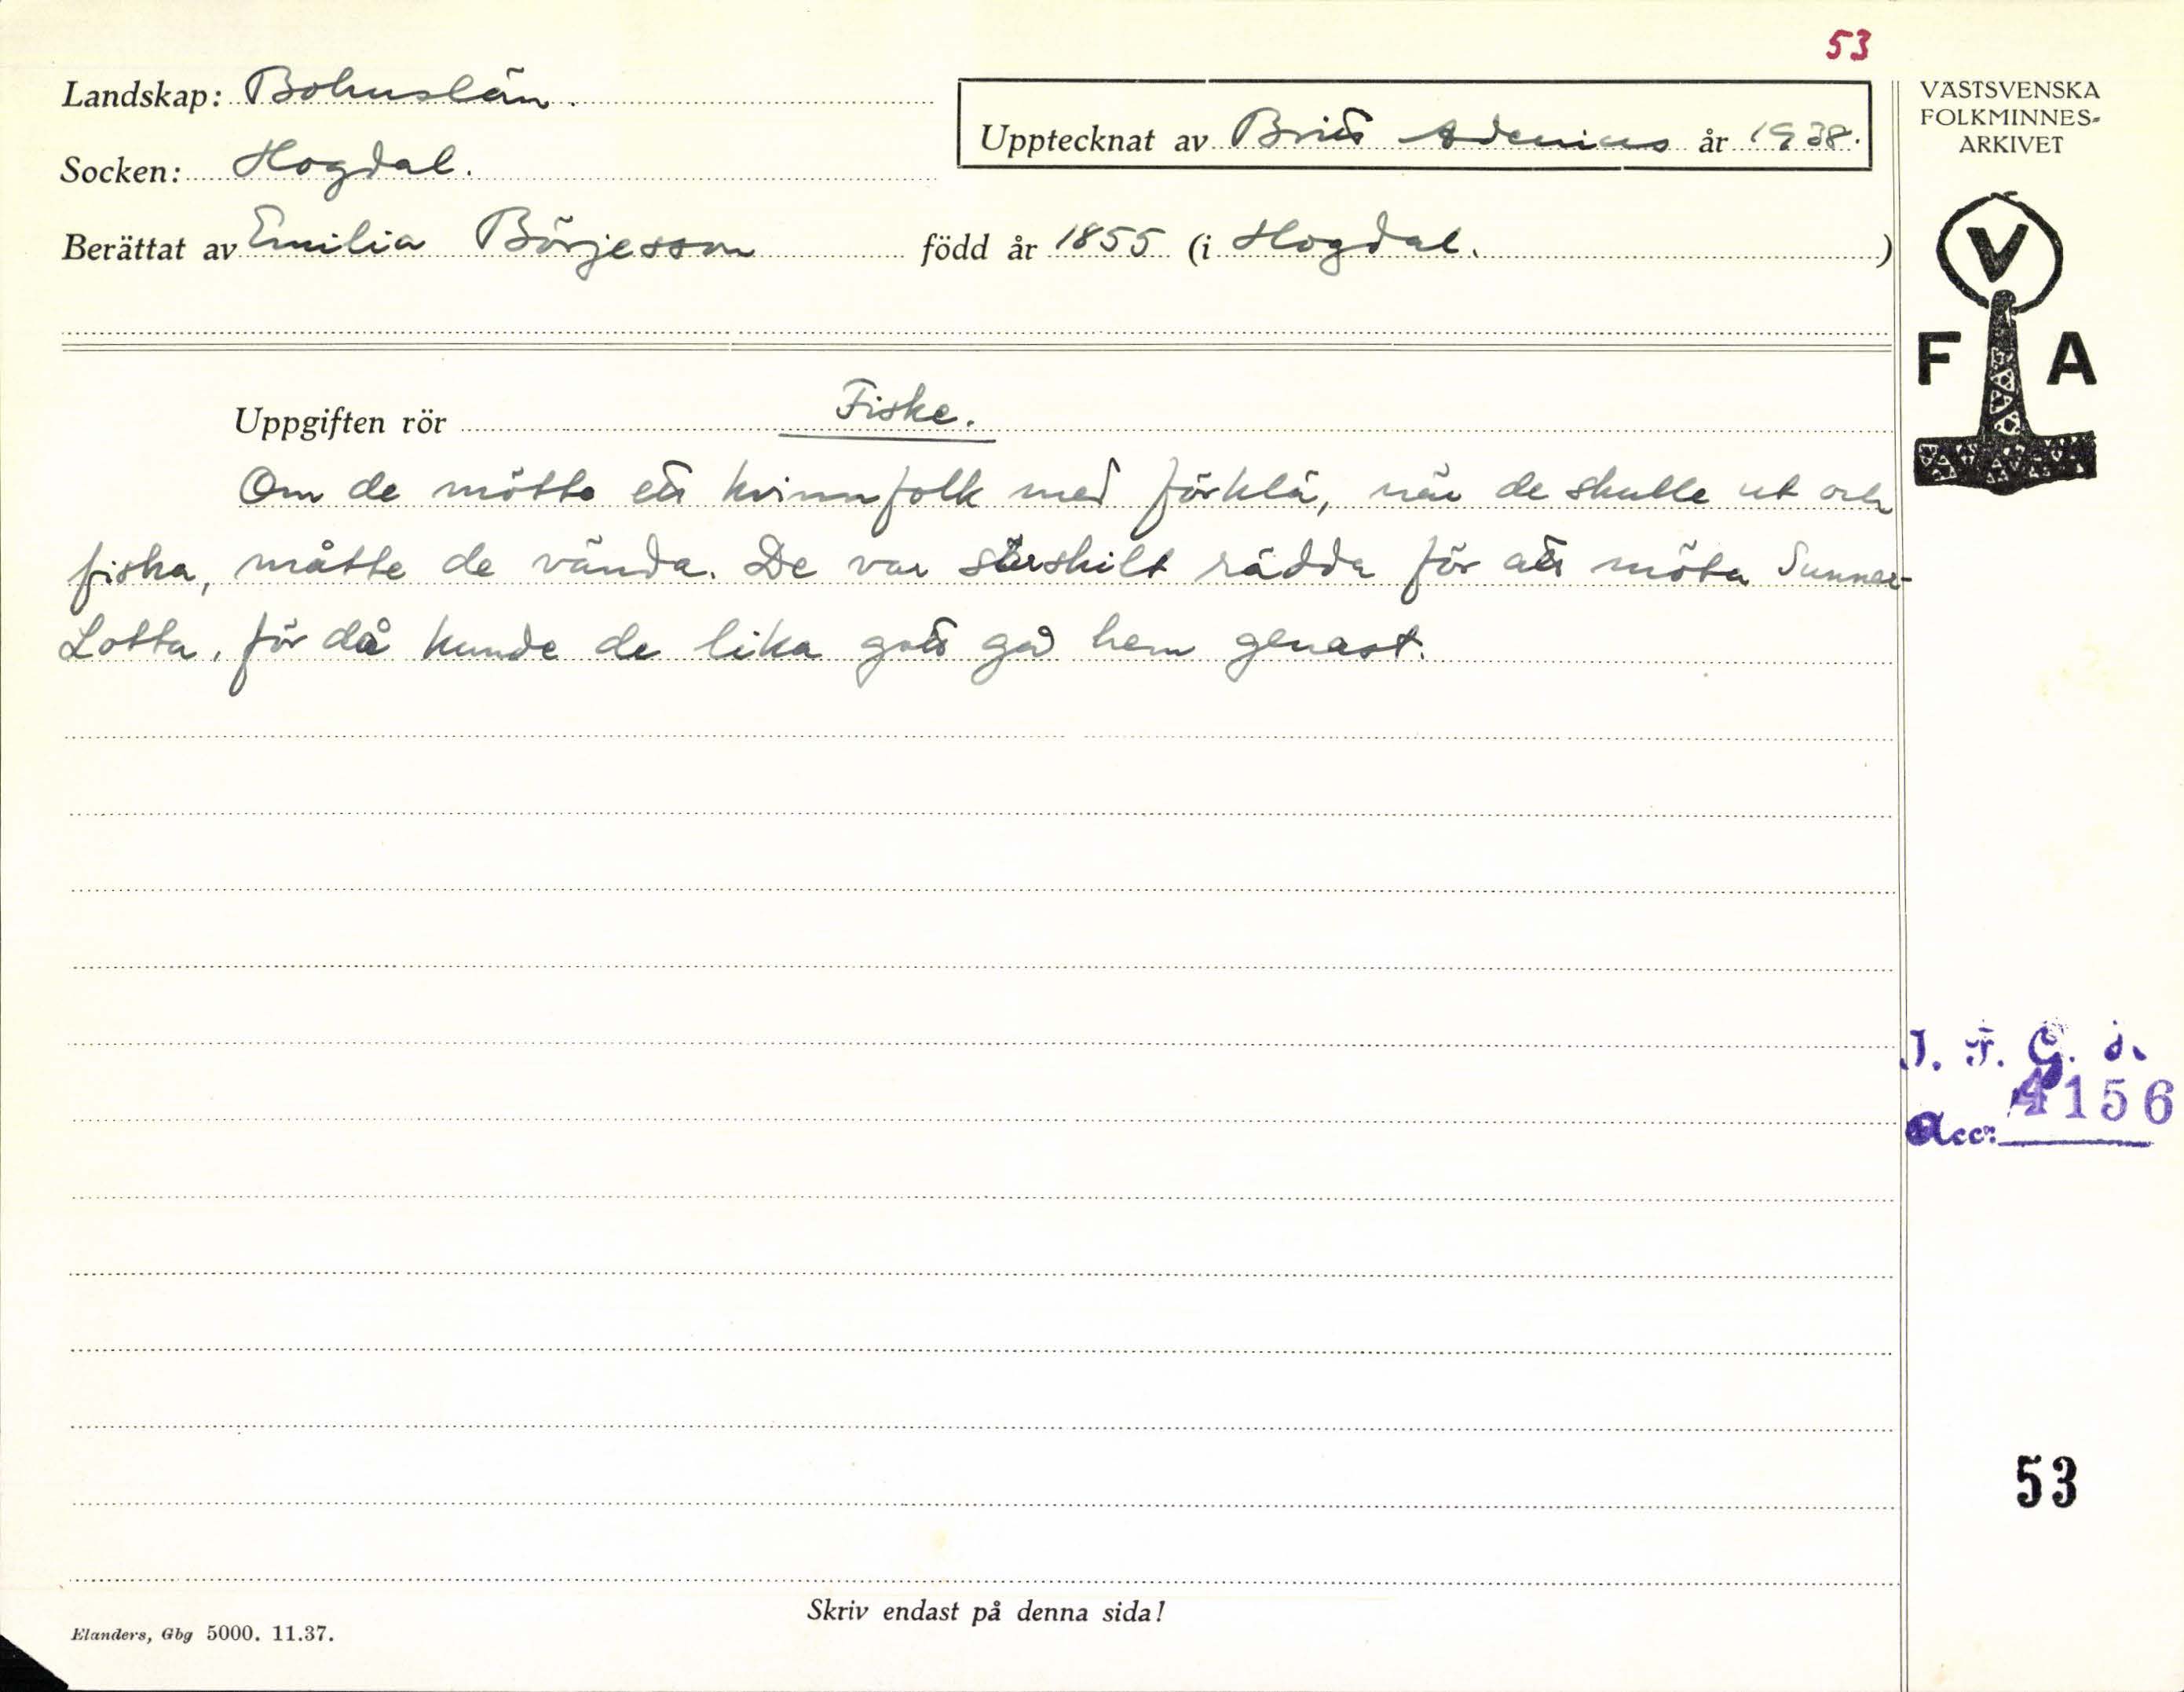 53
Landskap: Bohuslän.
Upptecknat av Britt Adenius år 1938.
Socken: Hogdal.
Berättat av Emilia Börjesson född år 1855 (i Hogdal. )
VÄSTSVENSKA
FOLKMINNES-
ARKIVET
V
F A
Uppgiften rör Fiske.
Om de mötte ett kvinnfolk med förklä, när de skulle ut och
fiska, måtte de vända. De var särskilt rädda för att möta Sunner-
Lotta, för då kunde de lika gott gå hem genast.
I. F. G. s.
4156
Acc:
53
Skriv endast på denna sida!
Elanders, Gbg 5000. 11.37.